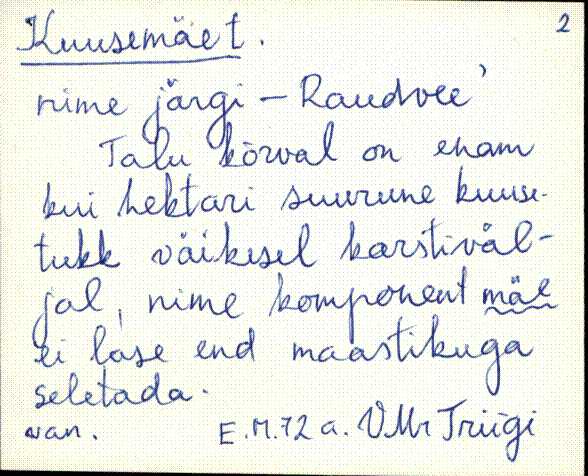 Kuusemäe t. 2
nime järgi – Raudvee'
Talu kõrval on enam
kui hektari suurune kuuse-
tukk väikesel karstiväl-
jal, nime komponent mäe
ei lase end maastikuga
seletada.
van. E.M. 72 a. VMr Triigi